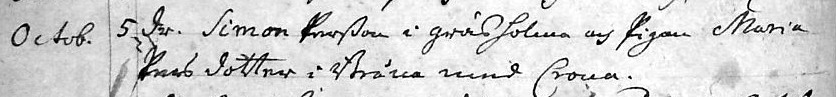 Octob. 5 Dr. Simon Perßon i gräsholma och Pigan Maria
Pers dotter i Bråna med Crona.